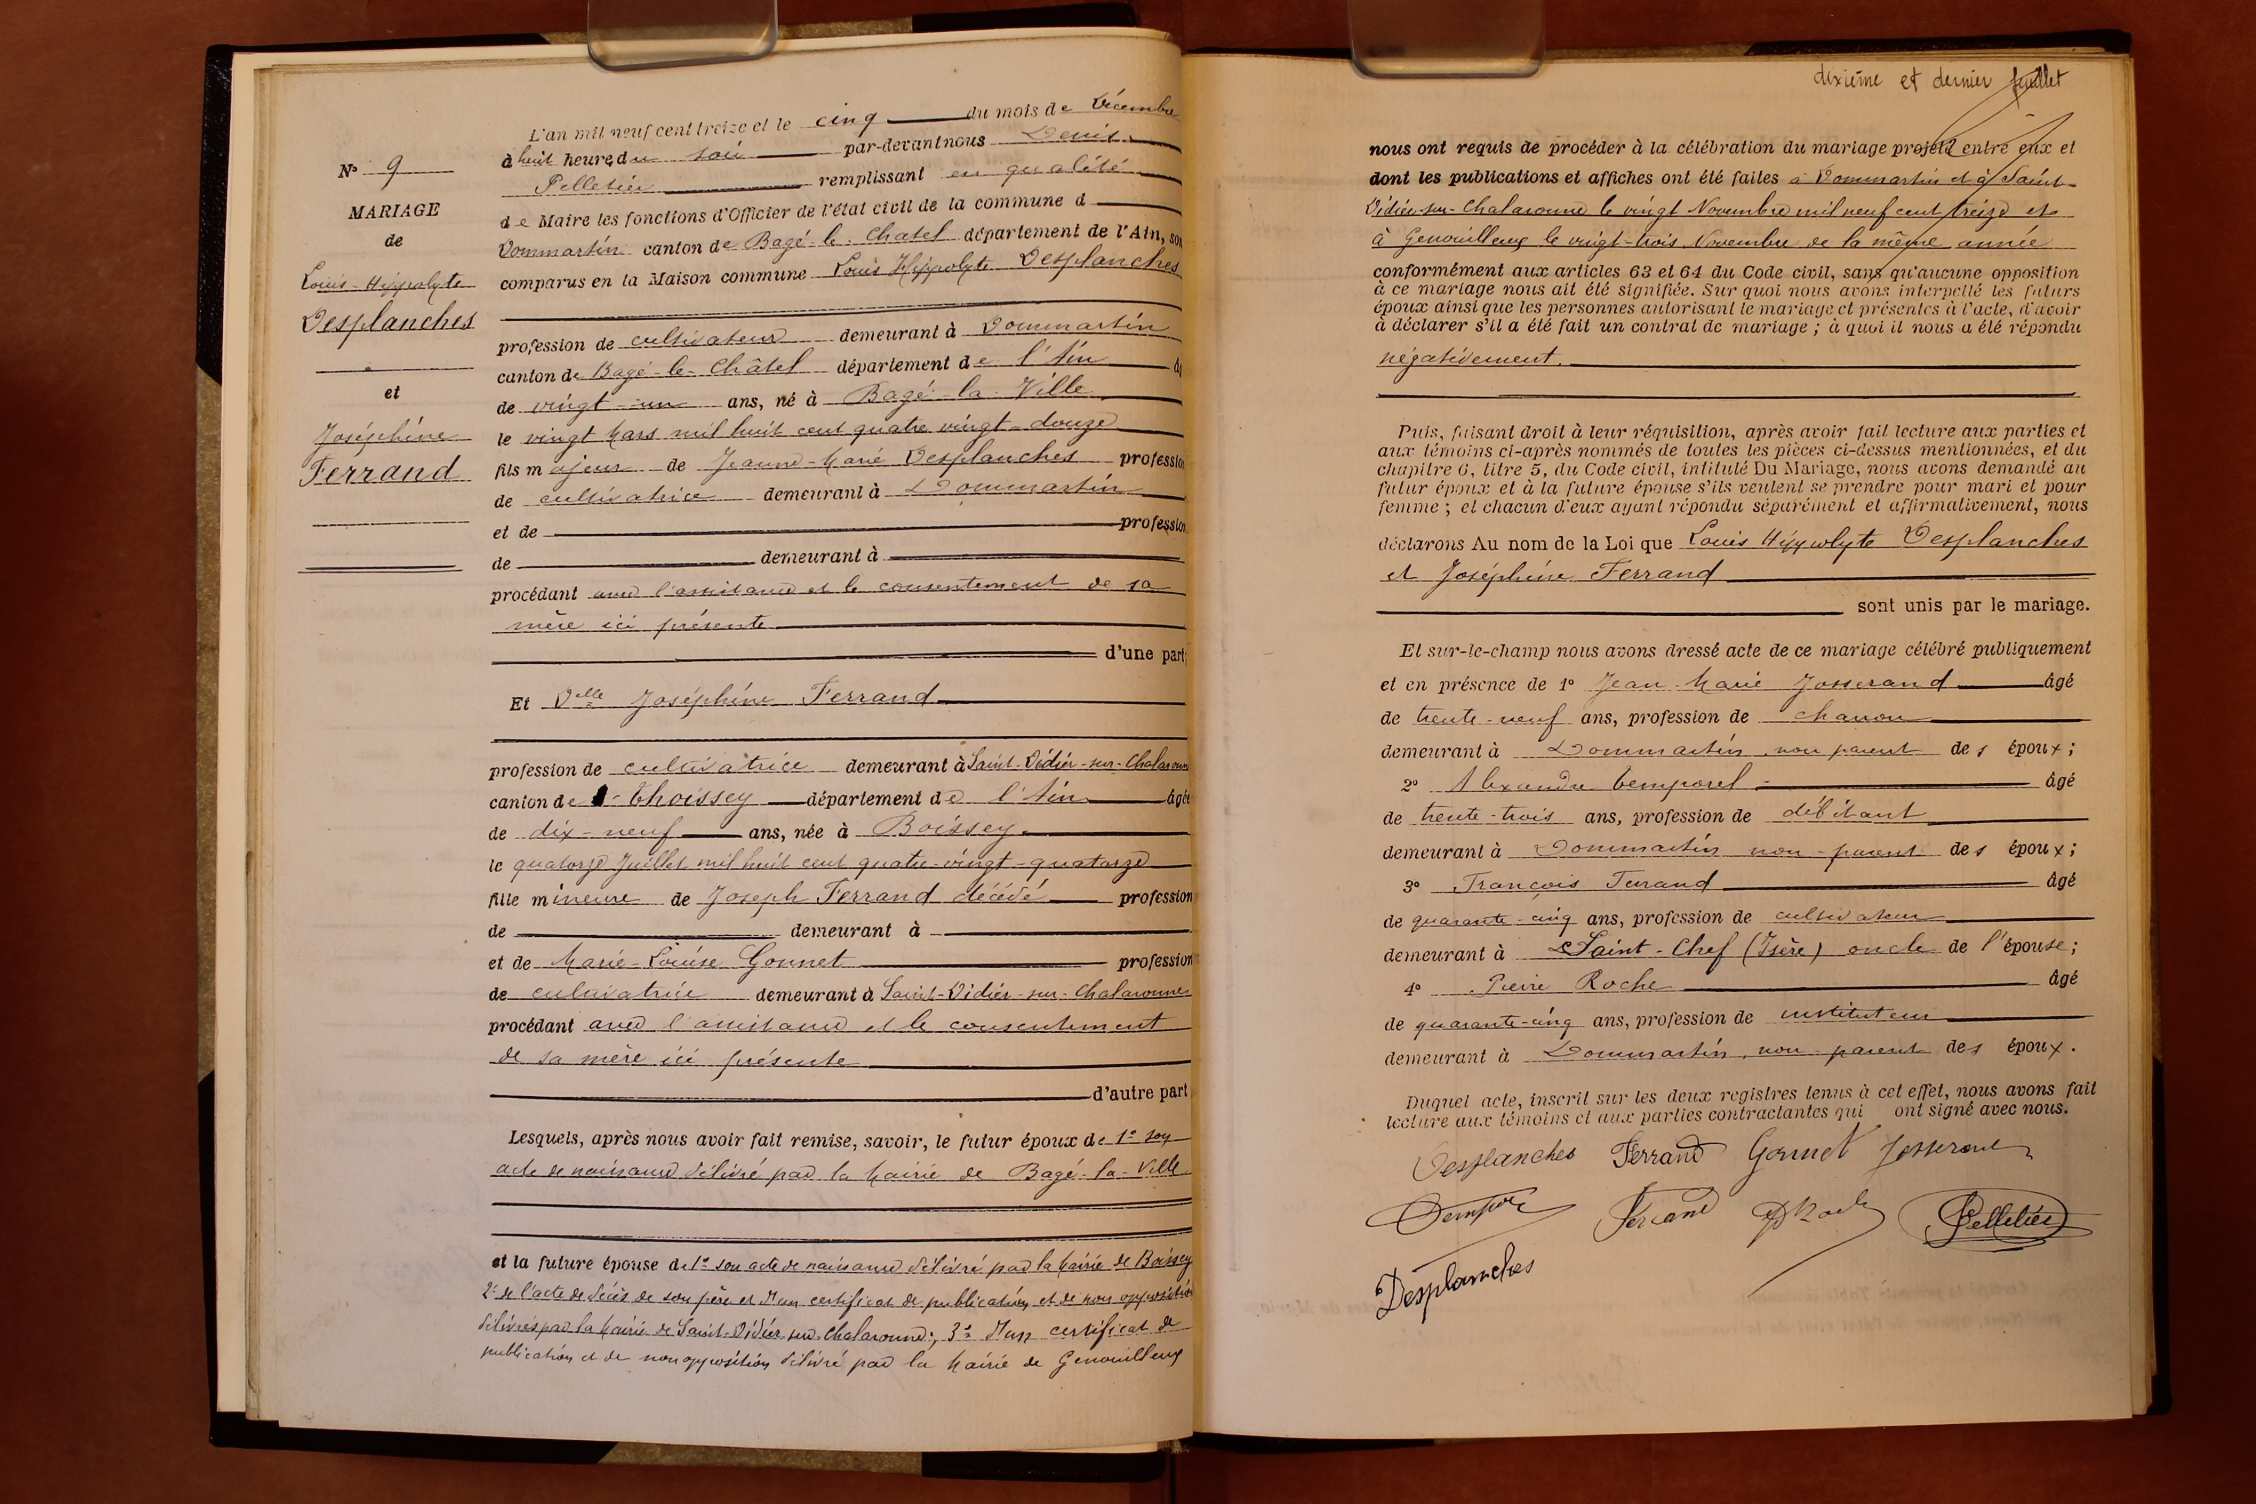 N° 9
MARIAGE
de
Louis-Hippolyte
Desplanches
et
Joséphine
Ferrand
L'an mil neuf cent treize et le cinq du mois de Décembre
à huit heures du soir par-devant nous Denis
Pelletier remplissant en qualité
de Maire les fonctions d'Officier de l'état civil de la commune d
Dommartin canton de Bagé-le-Chatel département de l'Ain, son
comparus en la Maison commune Louis Hippolyte Desplanches
profession de cultivateur demeurant à Dommartin
canton de Bagé-le-Châtel département de l'Ain âg
de vingt-un ans, né à Bagé-la-Ville
le vingt Mars mil huit cent quatre vingt-douze
fils majeur de Jeanne-Marie Desplanches profession
de cultivatrice demeurant à Dommartin
et de profession
de demeurant à
procédant avec l'assistance et le consentement de sa
mère ici présente
d'une part;
Et Delle Joséphine Ferrand
profession de cultivatrice demeurant à Saint-Didier-sur-Chalaronne
canton de Thoissey département de l'Ain âgée
de dix-neuf ans, née à Boissey
le quatorze Juillet mil huit cent quatre-vingt-quatorze
fille mineure de Joseph Ferrand décédé profession
de demeurant à
et de Marie-Louise Gonnet profession
de cultivatrice demeurant à Saint-Didier-sur-Chalaronne
procédant avec l'assistance et le consentement
de sa mère ici présente
d'autre part
Lesquels, après nous avoir fait remise, savoir, le futur époux de 1° son
acte de naissance délivré par la Mairie de Bagé-la-Ville
et la future épouse de 1° son acte de naissance délivré par la Mairie de Boissey
2° de l'acte de décès de son père et d'un certificat de publication et de non opposition
délivrés par la Mairie de Saint-Didier-sur-Chalaronne; 3° d'un certificat de
publication et de non opposition délivré par la Mairie de Genouilleux
dixième et dernier feuillet
nous ont requis de procéder à la célébration du mariage projeté entre eux et
dont les publications et affiches ont été faites à Dommartin et à Saint-
Didier-sur-Chalaronne le vingt Novembre mil neuf cent treize et
à Genouilleux le vingt-trois Novembre de la même année
conformément aux articles 63 et 64 du Code civil, sans qu'aucune opposition
à ce mariage nous ait été signifiée. Sur quoi nous avons interpellé les futurs
époux ainsi que les personnes autorisant le mariage et présentes à l'acte, d'avoir
à déclarer s'il a été fait un contrat de mariage ; à quoi il nous a été répondu
négativement.
Puis, faisant droit à leur réquisition, après avoir fait lecture aux parties et
aux témoins ci-après nommés de toutes les pièces ci-dessus mentionnées, et du
chapitre 6, titre 5, du Code civil, intitulé Du Mariage, nous avons demandé au
futur époux et à la future épouse s'ils veulent se prendre pour mari et pour
femme ; et chacun d'eux ayant répondu séparément et affirmativement, nous
déclarons Au nom de la Loi que Louis Hippolyte Desplanches
et Joséphine Ferrand
sont unis par le mariage.
Et sur-le-champ nous avons dressé acte de ce mariage célébré publiquement
et en présence de 1° Jean Marie Josserand âgé
de trente-neuf ans, profession de charron
demeurant à Dommartin, non parent des époux ;
2° Alexandre Temporel âgé
de trente-trois ans, profession de débitant
demeurant à Dommartin non-parent des époux ;
3° François Ferrand âgé
de quarante-cinq ans, profession de cultivateur
demeurant à Saint-Chef (Isère) oncle de l'épouse ;
4° Pierre Roche âgé
de quarante-cinq ans, profession de instituteur
demeurant à Dommartin, non parent des époux.
Duquel acte, inscrit sur les deux registres tenus à cet effet, nous avons fait
lecture aux témoins et aux parties contractantes qui ont signé avec nous.
Desplanches Ferrand Gonnet Josserand
Ferrand Pelletier
Desplanches